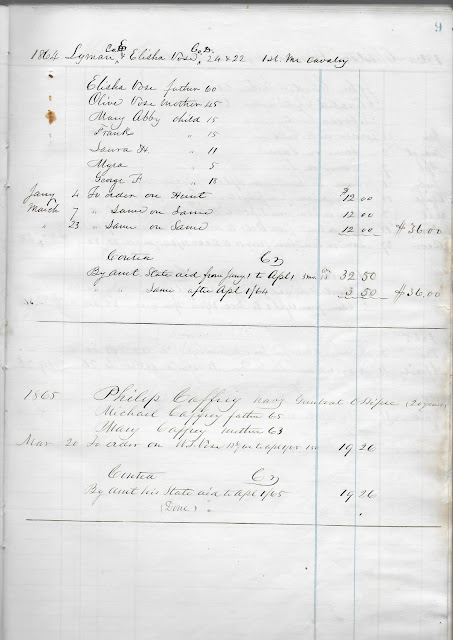 9
1864 Lyman Co. & Elisha Vose, Co. D. 24 & 22 1st Me Cavalry
Elisha Vose father 60
Olive Vose mother 45
Mary Abby child 15
Frank " 15
Laura H. " 11
Myra " 5
George F. " 18
Jany 4 To order on Hunt $12 00
March 7 " Same on Same 12 00
" 23 " Same on Same 12 00 $36.00
Contra Cr
By amt State aid from Jany 1 to Apl 1 32 50
" " Same after Apl 1/64 3 50 $36.00
1865 Philip Caffrey navy Gunboat
Michael Caffrey father 65
Mary Caffrey mother 63
Mar 20 To order on Vose 19 26
Contra Cr
By amt his State aid to Apl 1/65 19 26
(Done)